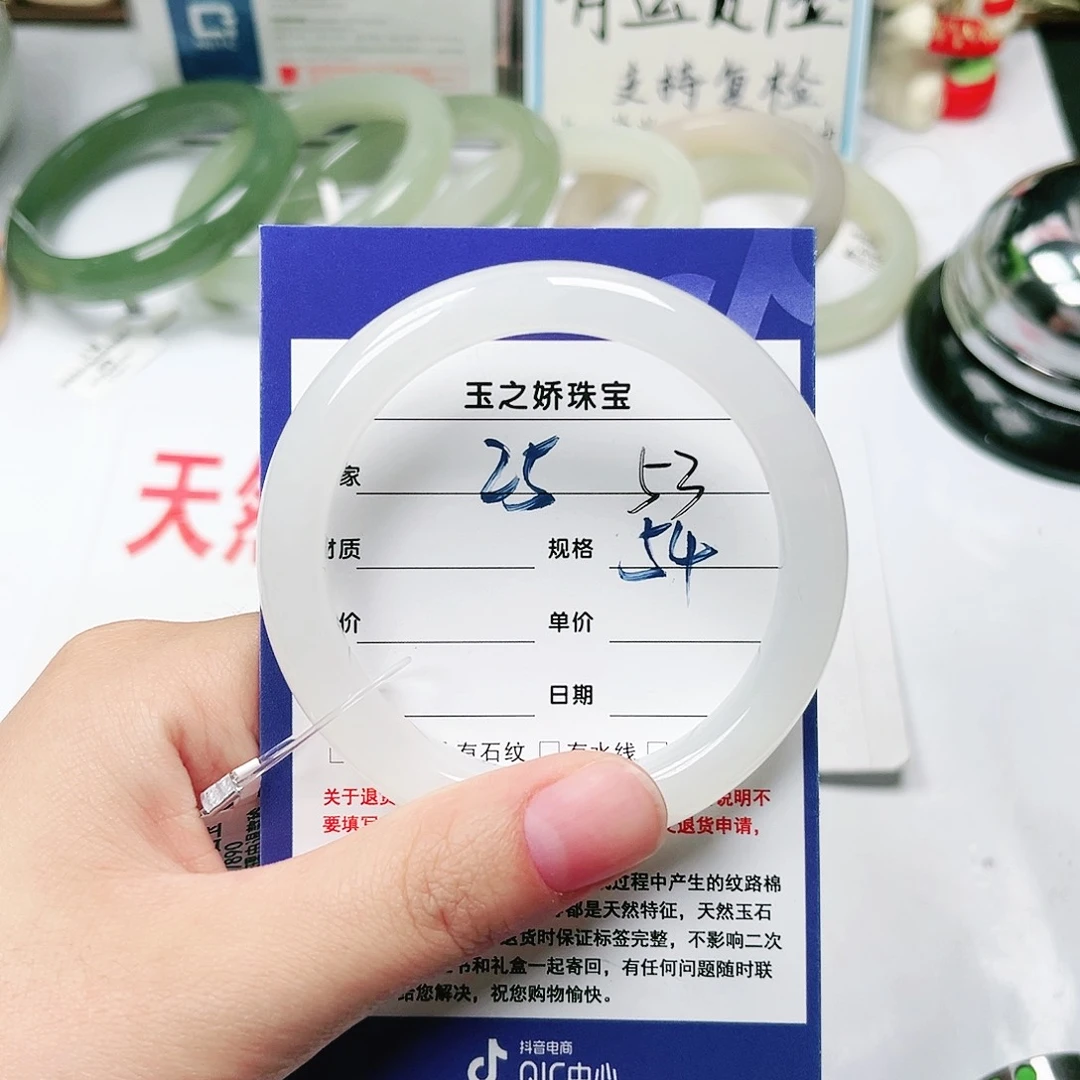 支持复检
天然
玉之娇珠宝
家 25 53
材质 规格 54
价 单价
日期
有石纹 □ 有水线 □
关于退货 说明不
要填写 退货申请，
过程中产生的纹路棉
都是天然特征，天然玉石
退货时保证标签完整，不影响二次
书和礼盒一起寄回，有任何问题随时联
给您解决，祝您购物愉快。
抖音电商
QIC中心